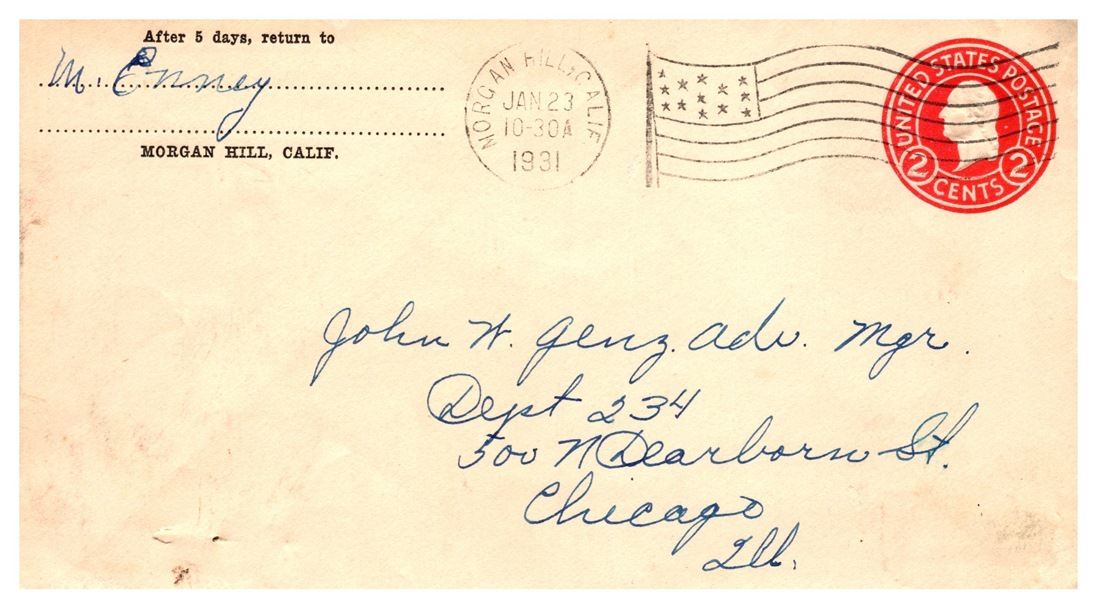 After 5 days, return to
M. Enney
MORGAN HILL, CALIF.
MORGAN HILL, CALIF.
JAN 23
10-30A
1931
UNITED STATES POSTAGE
2 CENTS 2
John W. Genz. Adv. Mgr.
Dept 234
500 N Dearborn St.
Chicago
Ill.